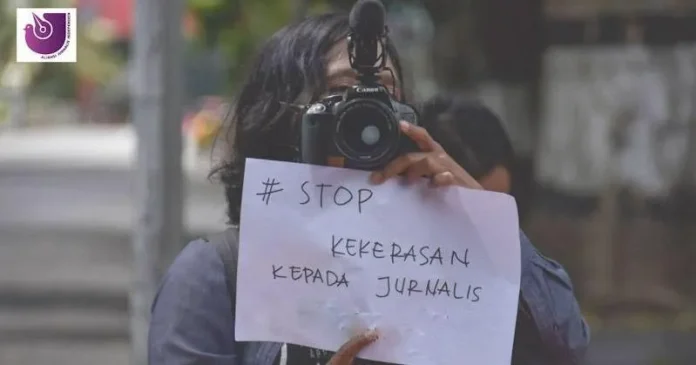 Canon
# STOP
KEKERASAN
KEPADA JURNALIS